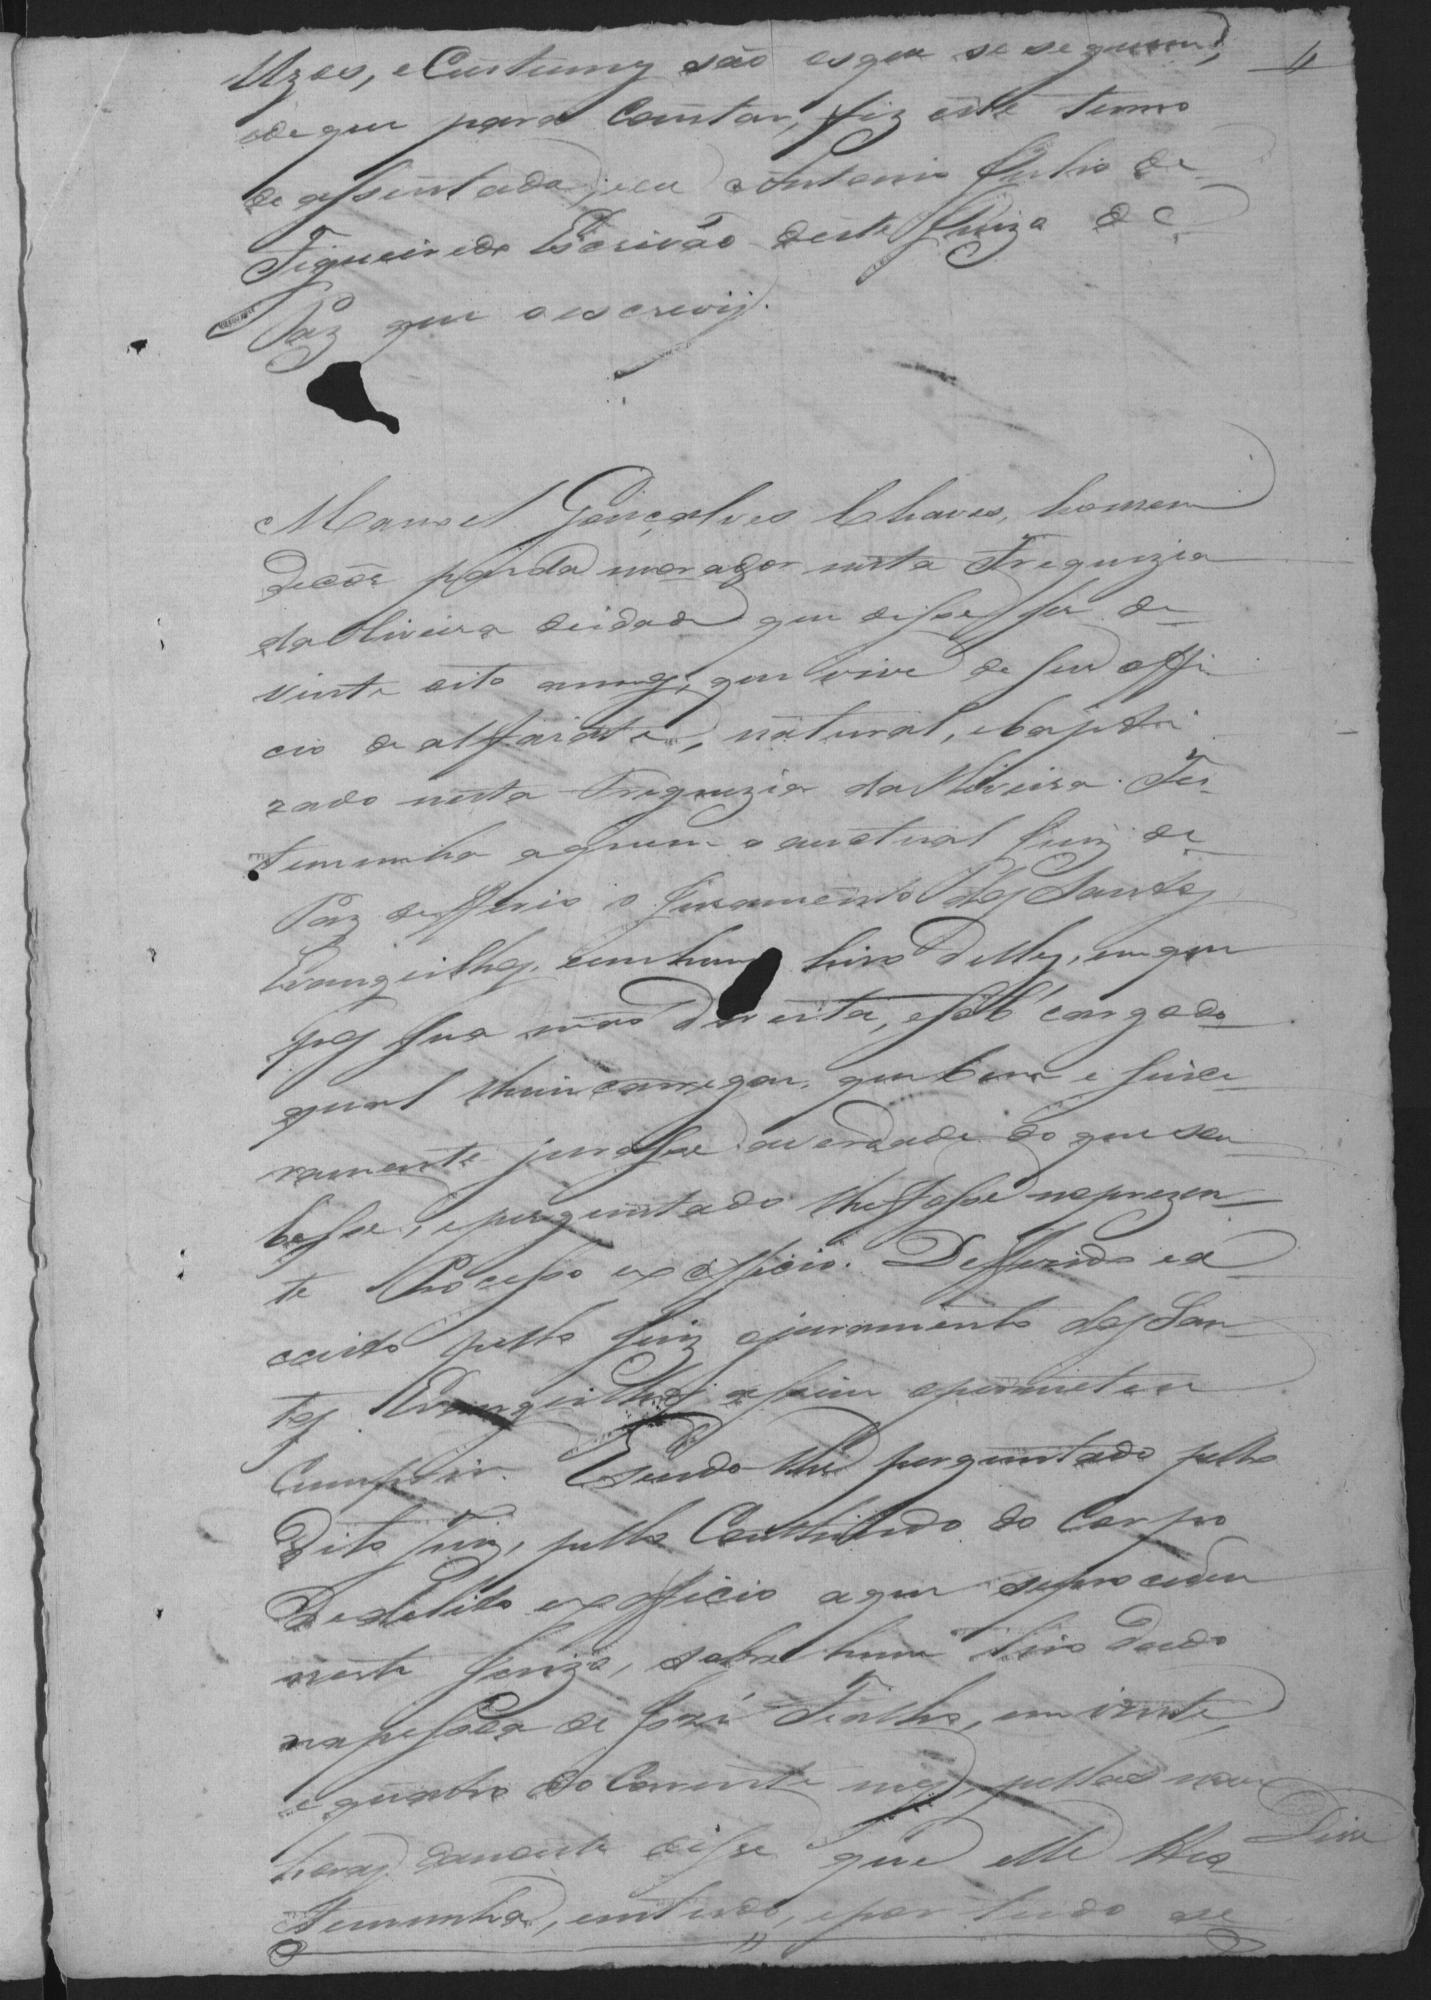 Uzos, e Custumes são os que se seguem,
e de que para Constar, fiz este termo
de assentada; eu Antonio Julio de
Figueiredo Escrivão deste Juizo de
Paz que o escrevij.
4
Manoel Gonçalves Chaves, homem
de côr parda morador nesta Freguizia
da Oliveira de idade que disse ser de
vinte oito annos, que vive de seu offi
cio de alfaiate, natural, e baptri
zado nesta Freguizia da Oliveira. Tes
temunha a quem o autual Juiz de
Paz defferio o juramento dos Santos
Evangeilhos, em hum livro delles, em que
pos sua mão direita, e sob cargo do
qual lhe incarregou, que bem e since
ramente jurasse a verdade do que sou
besse, e perguntado lhe fosse no prezen
te Processo ex officio. Defferido e a
cceito pello Juiz o juramento dos San
tos Evangeilhos assim o prometeu
Cumprir. E sendo-lhe perguntado pello
dito Juiz, pello Conthiudo do Corpo
de delito ex officio a que se procedeu
neste Juizo, sobre hum tiro dado
na pessôa de José Fialho, em vinte,
e quatro do Corrente mes, pellas nove
horas da noute disse que elle Tes
temunha, entende, e por tudo se
Disse